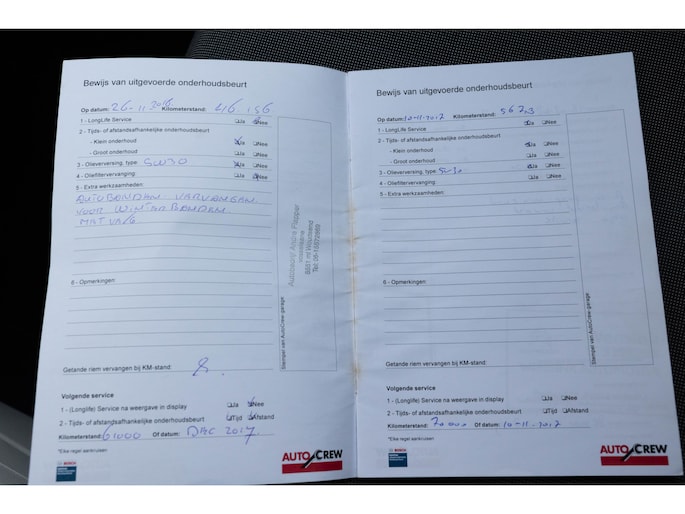 Bewijs van uitgevoerde onderhoudsbeurt
Op datum: 26-11-2016 Kilometerstand: 46.156
1 - LongLife Service Ja Nee
2 - Tijds- of afstandsafhankelijke onderhoudsbeurt
- Klein onderhoud Ja Nee
- Groot onderhoud Ja Nee
3 - Olieverversing, type: 5W30 Ja Nee
4 - Oliefiltervervanging Ja Nee
5 - Extra werkzaamheden:
VOOR WINTERBANDEN
6 - Opmerkingen:
Getande riem vervangen bij KM-stand:
Stempel van AutoCrew-garage
Volgende service
1 - (Longlife) Service na weergave in display Ja Nee
2 - Tijds- of afstandsafhankelijke onderhoudsbeurt Tijd Afstand
Kilometerstand: 61000 Of datum: DEC 2017
*Elke regel aankruisen
BOSCH
AUTO CREW
Bewijs van uitgevoerde onderhoudsbeurt
Op datum: 10-11-2017 Kilometerstand:
1 - LongLife Service Ja Nee
2 - Tijds- of afstandsafhankelijke onderhoudsbeurt
- Klein onderhoud Ja Nee
- Groot onderhoud Ja Nee
3 - Olieverversing, type: Ja Nee
4 - Oliefiltervervanging Ja Nee
5 - Extra werkzaamheden:
6 - Opmerkingen:
Getande riem vervangen bij KM-stand:
Stempel van AutoCrew-garage
Volgende service
1 - (Longlife) Service na weergave in display Ja Nee
2 - Tijds- of afstandsafhankelijke onderhoudsbeurt Tijd Afstand
Kilometerstand: Of datum: 10-11-2017
*Elke regel aankruisen
BOSCH
AUTO CREW